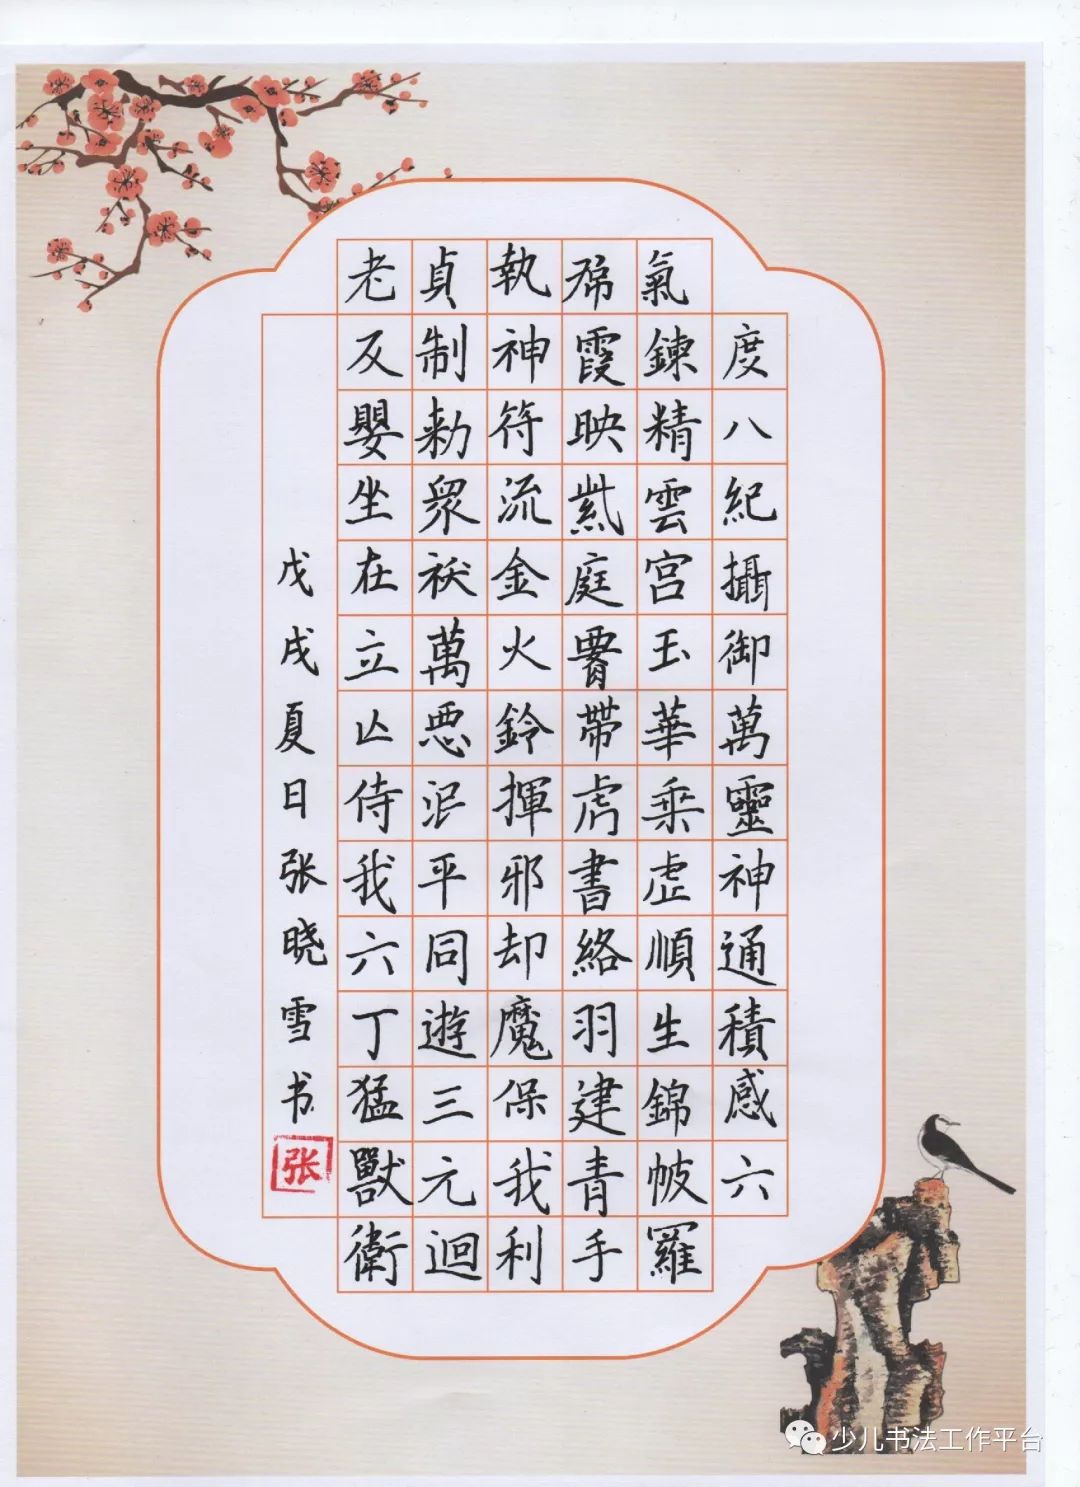 度八紀攝御萬靈神通積感六
氣鍊精雲宫玉華乘虛順生錦帔羅
帬霞映紫庭腰帶虎書絡羽建青手
執神符流金火鈴揮邪却魔保我利
貞制勑眾祅萬惡泯平同遊三元迴
老反嬰坐在立亾侍我六丁猛獸衛
戊戌夏日张晓雪书
张
少儿书法工作平台